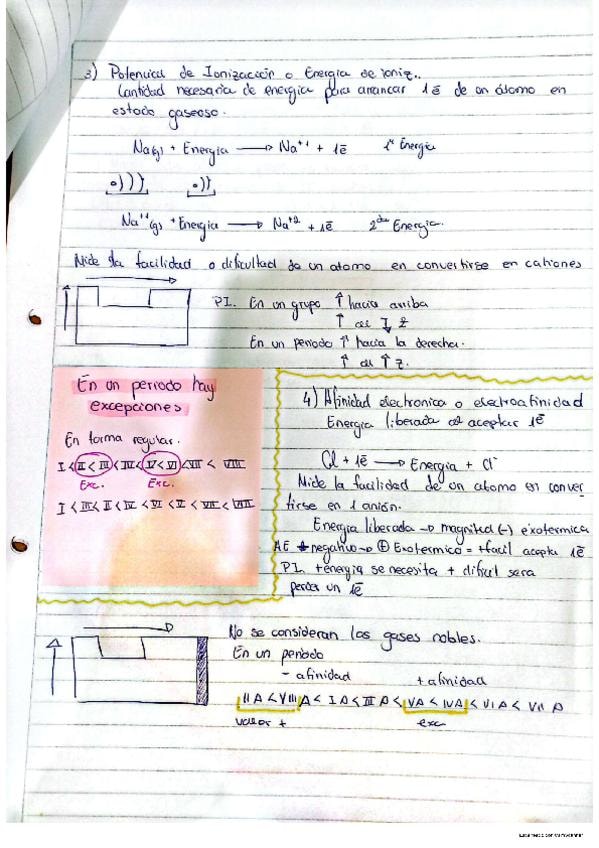 3) Potencial de Ionización o Energia de ioniz..
Cantidad necesaria de energia para arrancar 1ē de un átomo en
estado gaseoso.
Na(g) + Energia → Na⁺¹ + 1ē 1ᵃ Energia
Na⁺¹(g) + Energia → Na⁺² + 1ē 2ᵈᵃ Energia.
Mide la facilidad o dificultad de un atomo en convertirse en cationes
PI. En un grupo ↑ hacia arriba
↑ al ↓ Z
En un periodo ↑ hacia la derecha.
↑ al ↑ Z.
En un periodo hay
excepciones
En forma regular.
I < II < III < IV < V < VI < VII < VIII
Exc. Exc.
I < III < II < IV < VI < V < VII < VIII
4) Afinidad electronica o electroafinidad
Energia liberada al aceptar 1ē
Cl + 1ē → Energia + Cl⁻
Mide la facilidad de un atomo en conver
tirse en 1 anión.
Energia liberada → magnitud (-) exotermica
AE + negativo → ⊕ Exotermico = + facil acepta 1ē
PI. + energia se necesita + dificil sera
perder un 1ē
No se consideran los gases nobles.
En un periodo
- afinidad + afinidad
II A < VIII A < I A < III A < VA < IVA < VI A < VII A
valor + exc